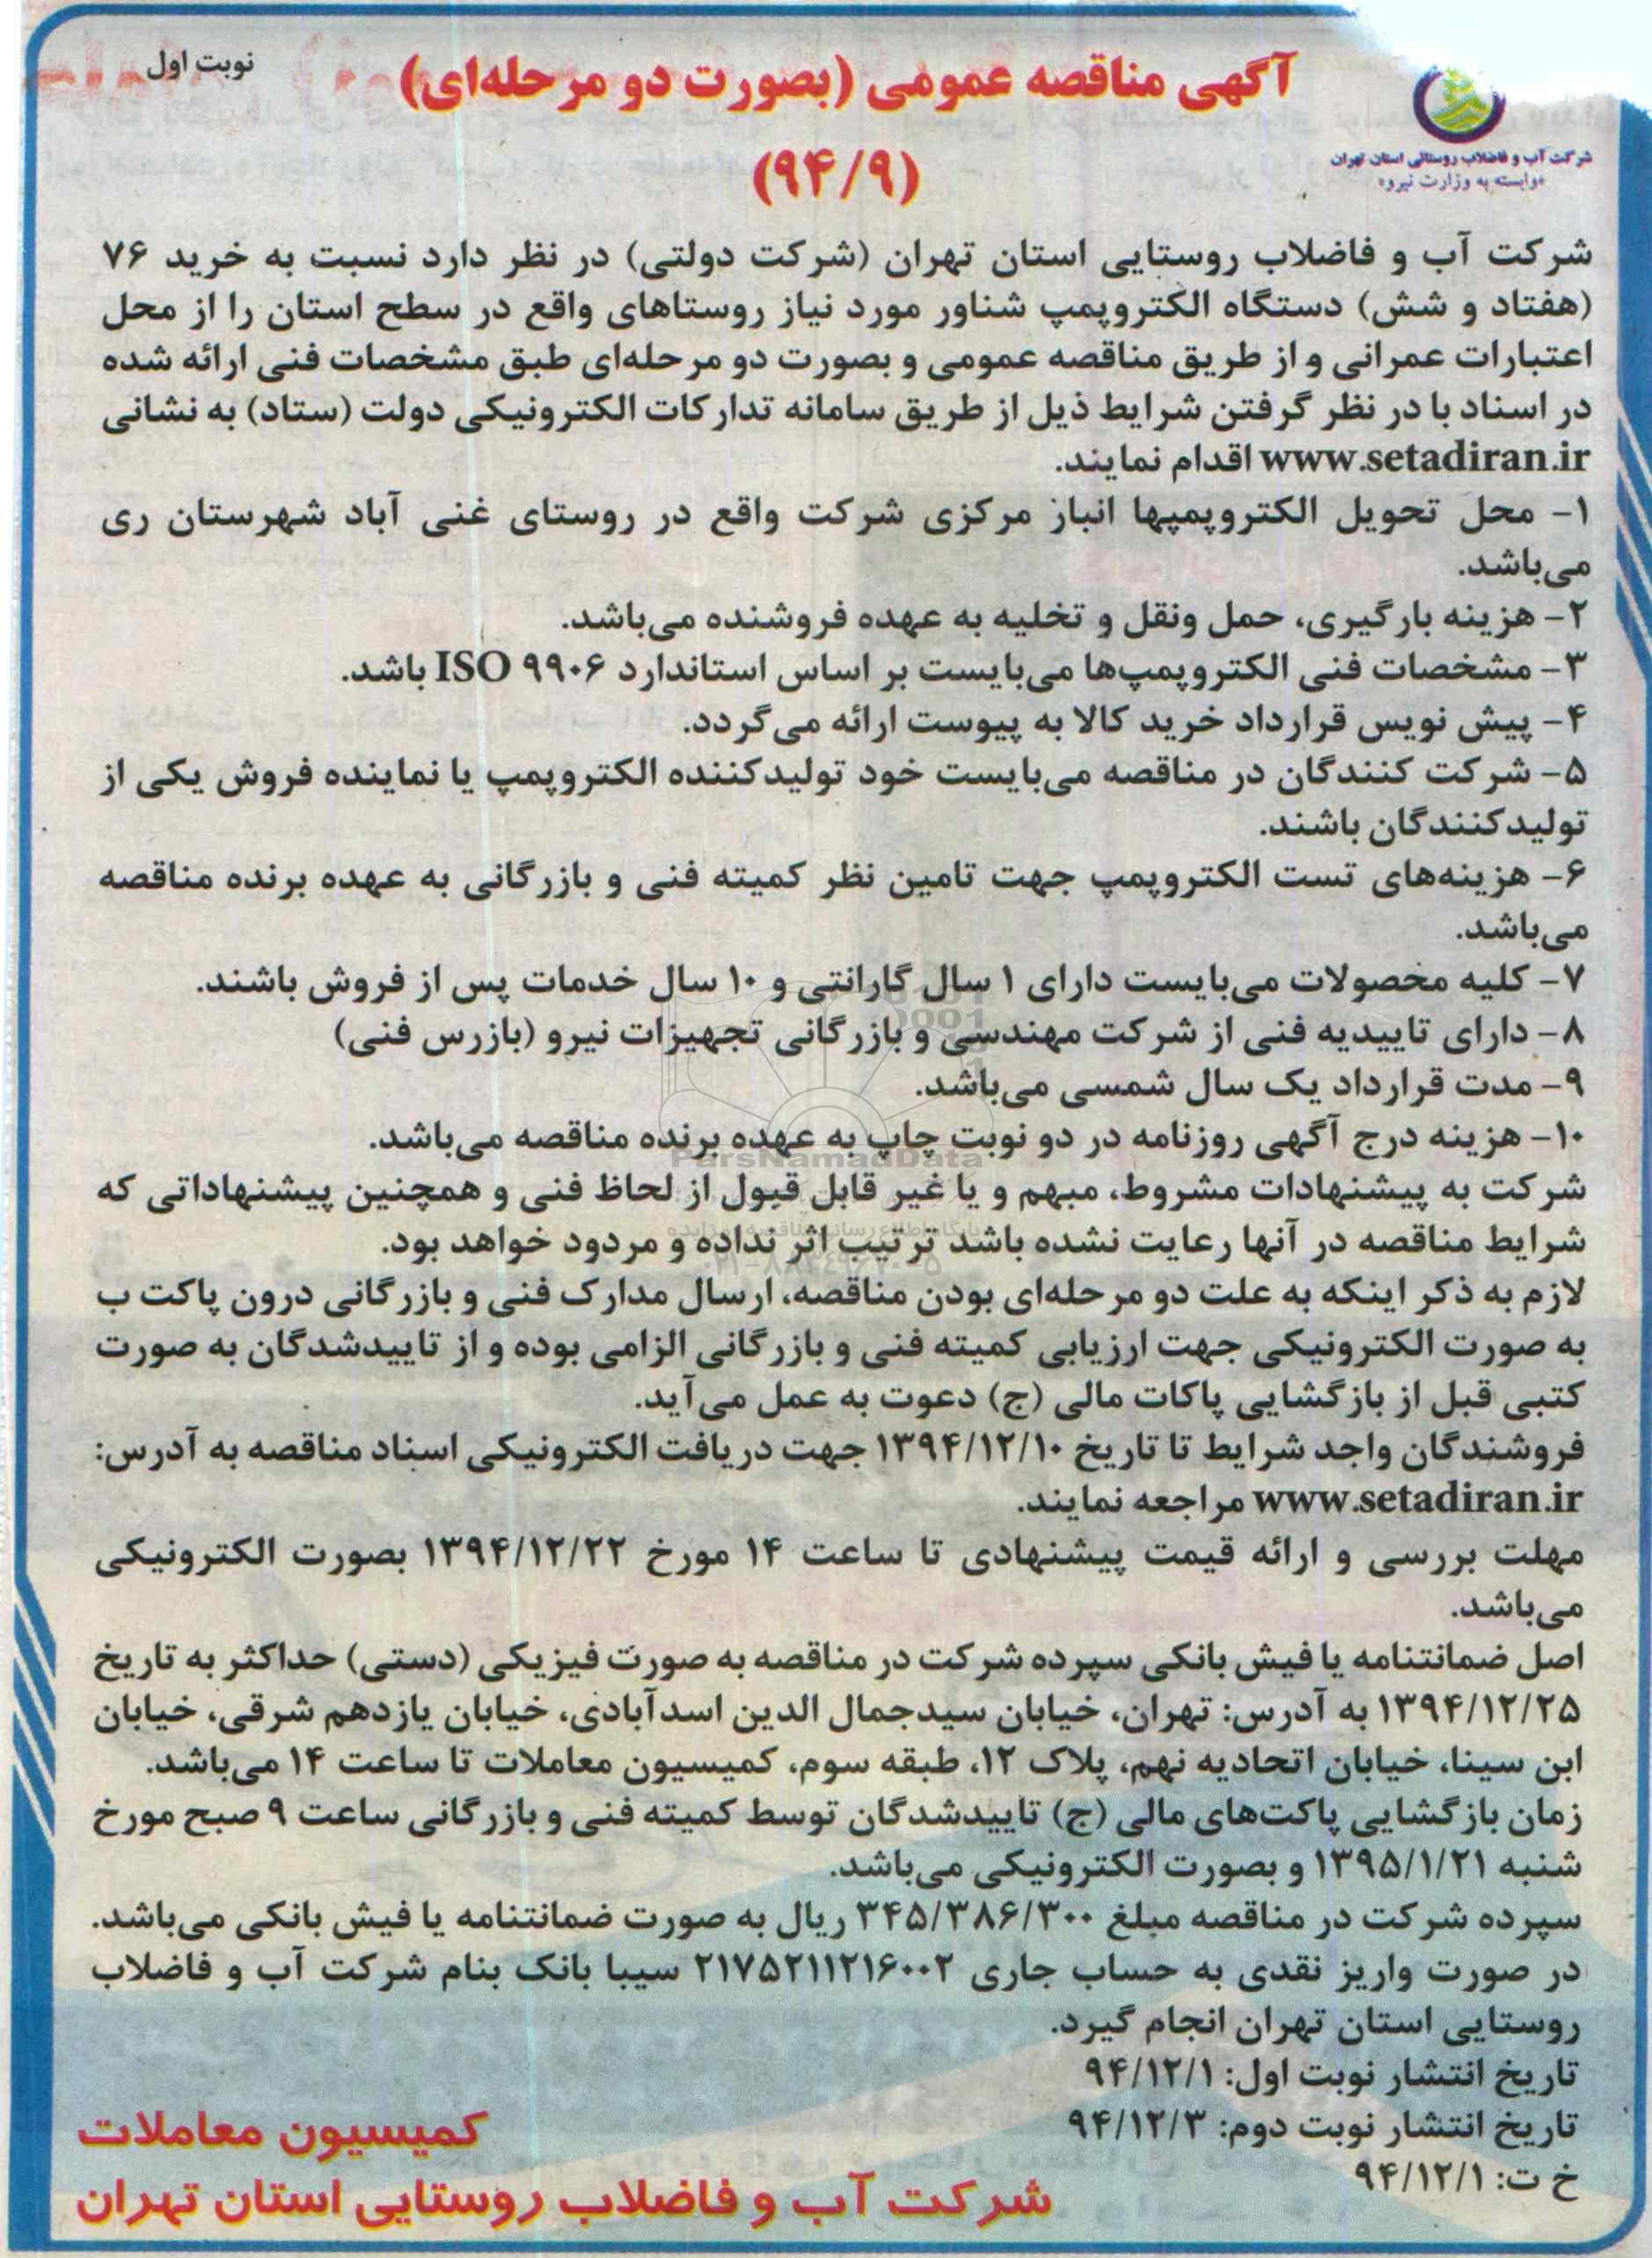 نوبت اول
آگهی مناقصه عمومی (بصورت دو مرحله‌ای)
(۹۴/۹)
شرکت آب و فاضلاب روستائی استان تهران
«وابسته به وزارت نیرو»
شرکت آب و فاضلاب روستایی استان تهران (شرکت دولتی) در نظر دارد نسبت به خرید ۷۶
(هفتاد و شش) دستگاه الکتروپمپ شناور مورد نیاز روستاهای واقع در سطح استان را از محل
اعتبارات عمرانی و از طریق مناقصه عمومی و بصورت دو مرحله‌ای طبق مشخصات فنی ارائه شده
در اسناد با در نظر گرفتن شرایط ذیل از طریق سامانه تدارکات الکترونیکی دولت (ستاد) به نشانی
www.setadiran.ir اقدام نمایند.
۱- محل تحویل الکتروپمپها انبار مرکزی شرکت واقع در روستای غنی آباد شهرستان ری
می‌باشد.
۲- هزینه بارگیری، حمل ونقل و تخلیه به عهده فروشنده می‌باشد.
۳- مشخصات فنی الکتروپمپ‌ها می‌بایست بر اساس استاندارد ISO ۹۹۰۶ باشد.
۴- پیش نویس قرارداد خرید کالا به پیوست ارائه می‌گردد.
۵- شرکت کنندگان در مناقصه می‌بایست خود تولیدکننده الکتروپمپ یا نماینده فروش یکی از
تولیدکنندگان باشند.
۶- هزینه‌های تست الکتروپمپ جهت تامین نظر کمیته فنی و بازرگانی به عهده برنده مناقصه
می‌باشد.
۷- کلیه محصولات می‌بایست دارای ۱ سال گارانتی و ۱۰ سال خدمات پس از فروش باشند.
۸- دارای تاییدیه فنی از شرکت مهندسی و بازرگانی تجهیزات نیرو (بازرس فنی)
۹- مدت قرارداد یک سال شمسی می‌باشد.
۱۰- هزینه درج آگهی روزنامه در دو نوبت چاپ به عهده برنده مناقصه می‌باشد.
ParsNamadData
شرکت به پیشنهادات مشروط، مبهم و یا غیر قابل قبول از لحاظ فنی و همچنین پیشنهاداتی که
شرایط مناقصه در آنها رعایت نشده باشد ترتیب اثر نداده و مردود خواهد بود.
لازم به ذکر اینکه به علت دو مرحله‌ای بودن مناقصه، ارسال مدارک فنی و بازرگانی درون پاکت ب
به صورت الکترونیکی جهت ارزیابی کمیته فنی و بازرگانی الزامی بوده و از تاییدشدگان به صورت
کتبی قبل از بازگشایی پاکات مالی (ج) دعوت به عمل می‌آید.
فروشندگان واجد شرایط تا تاریخ ۱۳۹۴/۱۲/۱۰ جهت دریافت الکترونیکی اسناد مناقصه به آدرس:
www.setadiran.ir مراجعه نمایند.
مهلت بررسی و ارائه قیمت پیشنهادی تا ساعت ۱۴ مورخ ۱۳۹۴/۱۲/۲۲ بصورت الکترونیکی
می‌باشد.
اصل ضمانتنامه یا فیش بانکی سپرده شرکت در مناقصه به صورت فیزیکی (دستی) حداکثر به تاریخ
۱۳۹۴/۱۲/۲۵ به آدرس: تهران، خیابان سیدجمال الدین اسدآبادی، خیابان یازدهم شرقی، خیابان
ابن سینا، خیابان اتحادیه نهم، پلاک ۱۲، طبقه سوم، کمیسیون معاملات تا ساعت ۱۴ می‌باشد.
زمان بازگشایی پاکت‌های مالی (ج) تاییدشدگان توسط کمیته فنی و بازرگانی ساعت ۹ صبح مورخ
شنبه ۱۳۹۵/۱/۲۱ و بصورت الکترونیکی می‌باشد.
سپرده شرکت در مناقصه مبلغ ۳۴۵/۳۸۶/۳۰۰ ریال به صورت ضمانتنامه یا فیش بانکی می‌باشد.
در صورت واریز نقدی به حساب جاری ۲۱۷۵۲۱۱۲۱۶۰۰۲ سیبا بانک بنام شرکت آب و فاضلاب
روستایی استان تهران انجام گیرد.
تاریخ انتشار نوبت اول: ۹۴/۱۲/۱
تاریخ انتشار نوبت دوم: ۹۴/۱۲/۳
خ ت: ۹۴/۱۲/۱
کمیسیون معاملات
شرکت آب و فاضلاب روستایی استان تهران